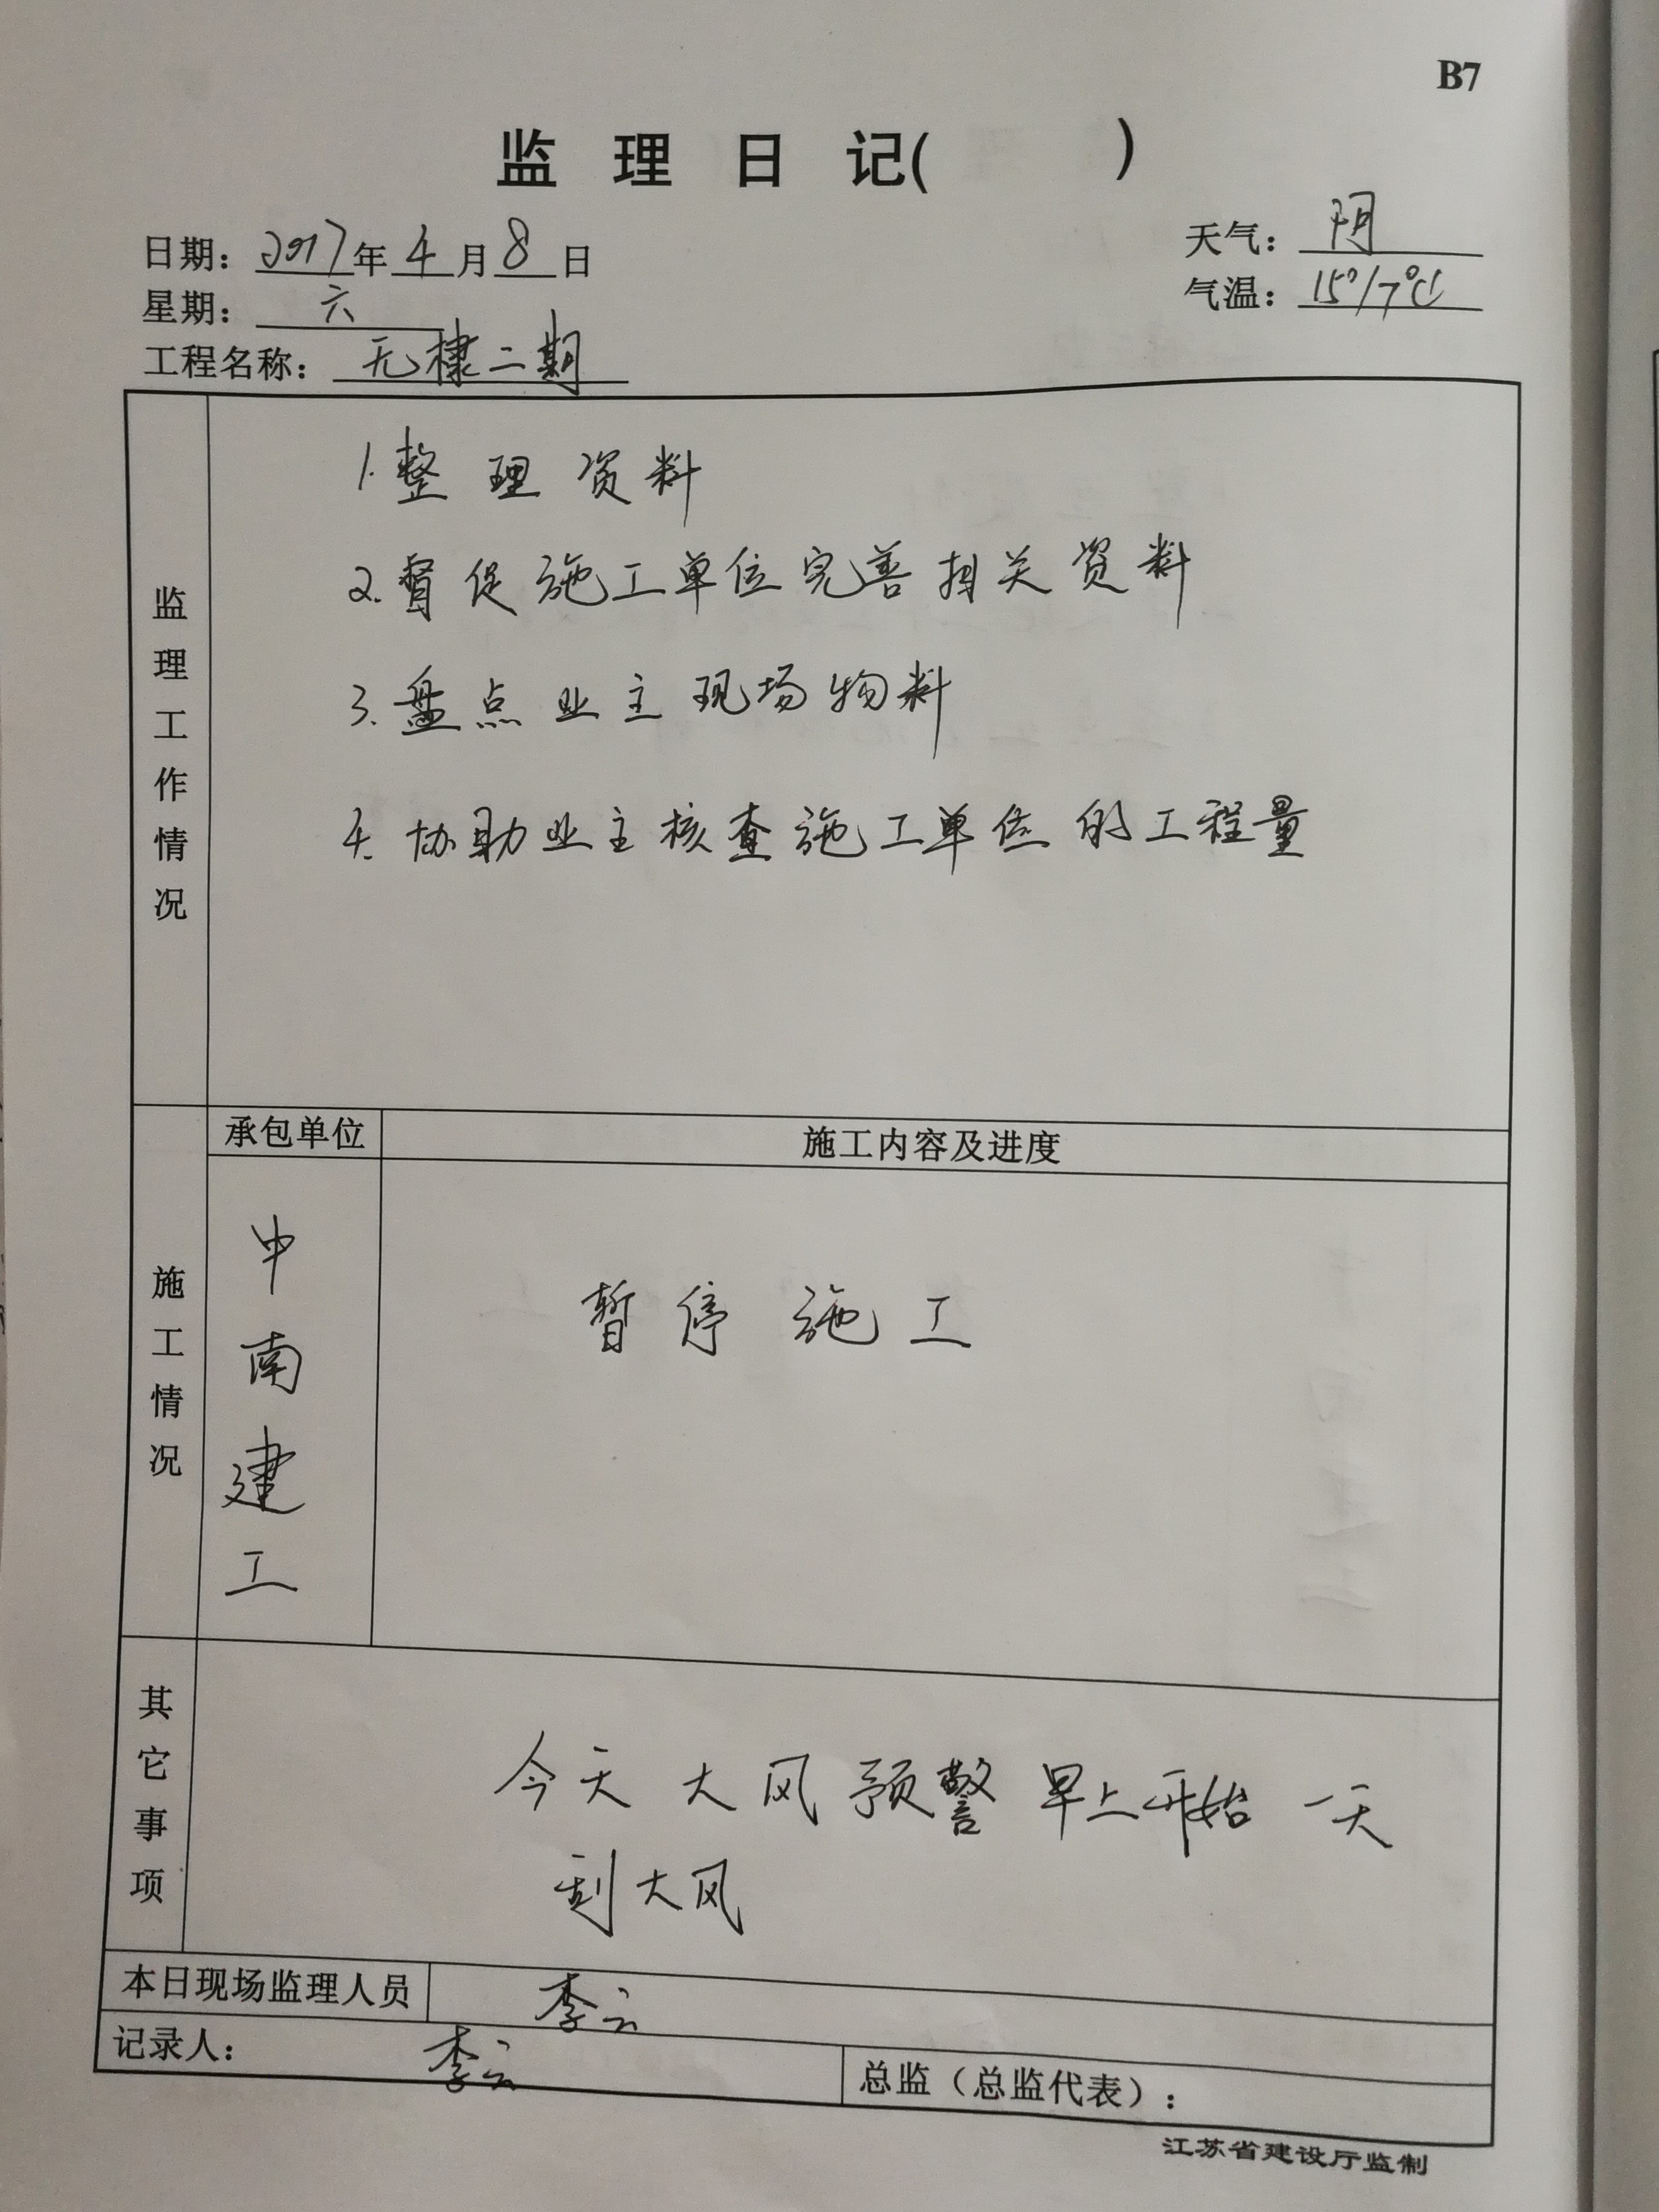 B7
监理日记( )
日期：2017年4月8日 天气：阴
星期：六 气温：15°/7℃
工程名称：无棣二期
监理工作情况
1.整理资料
2.督促施工单位完善相关资料
3.盘点业主现场物料
4.协助业主核查施工单位的工程量
承包单位 施工内容及进度
施工情况
中南建工
暂停施工
其它事项
今天大风预警早上开始一天
刮大风
本日现场监理人员 李云
记录人： 李云 总监（总监代表）：
江苏省建设厅监制